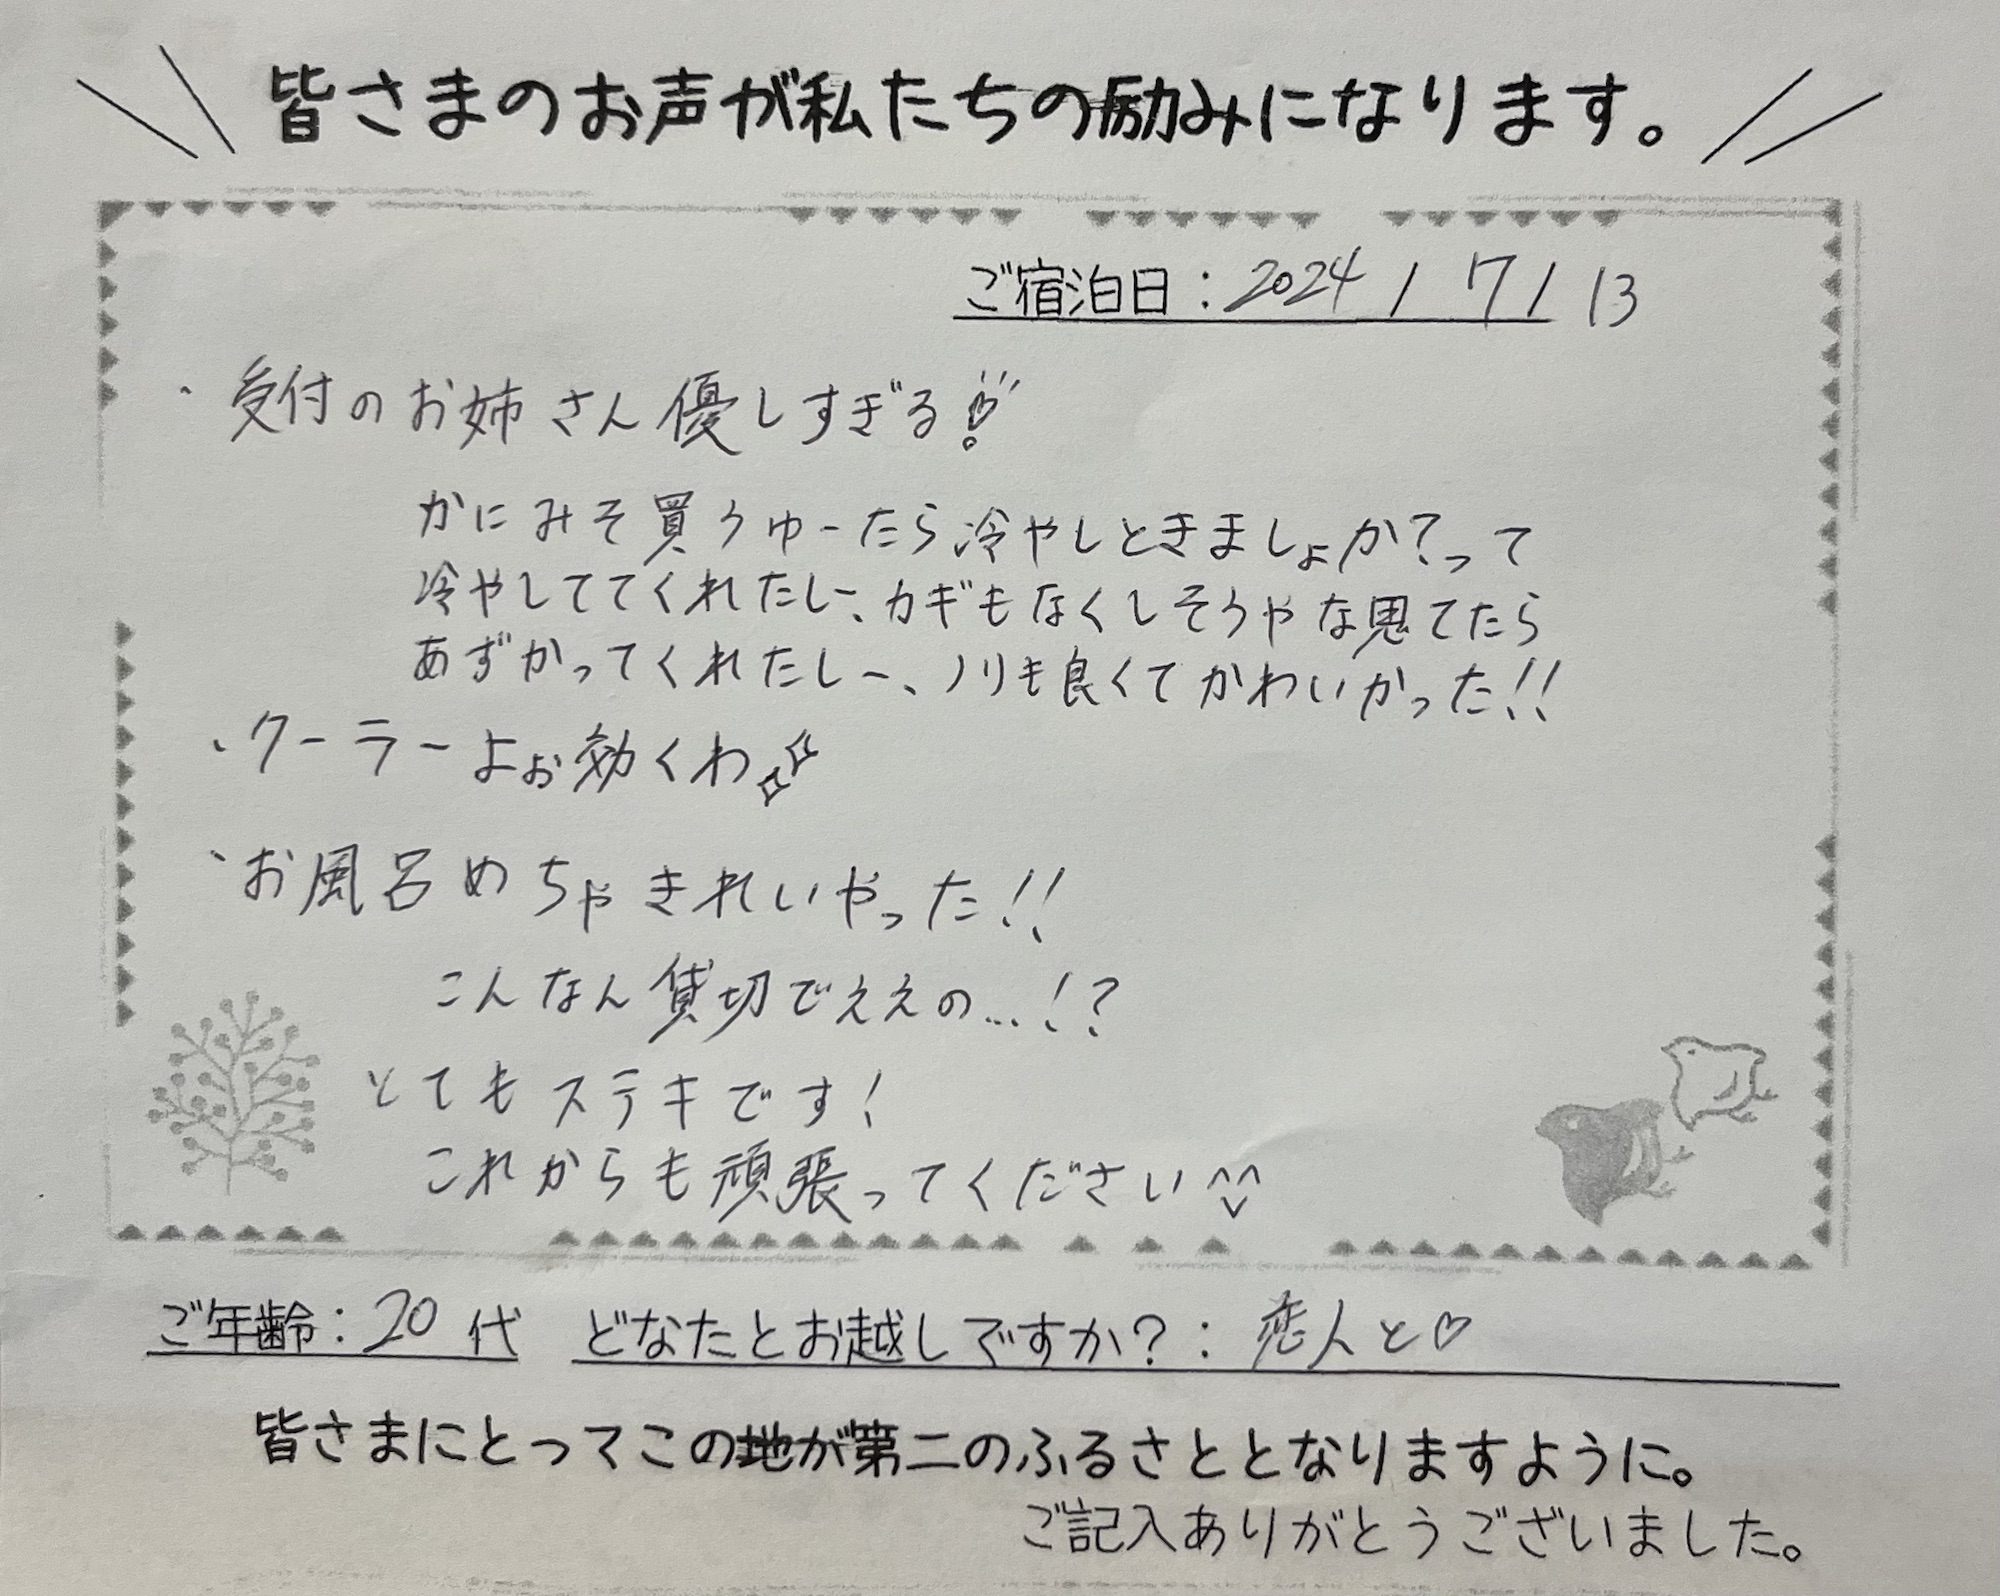 皆さまのお声が私たちの励みになります。
ご宿泊日：2024 / 7 / 13
・受付のお姉さん優しすぎる!
かにみそ買うゆーたら冷やしときましょか?って
冷やしててくれたしー、カギもなくしそうやな思てたら
あずかってくれたしー、ノリも良くてかわいかった!!
・クーラーよぉ効くわ
・お風呂めちゃきれいやった!!
こんなん貸切でええの…!?
とてもステキです!
これからも頑張ってください^^
ご年齢：20代 どなたとお越しですか？：恋人と♡
皆さまにとってこの地が第二のふるさととなりますように。
ご記入ありがとうございました。